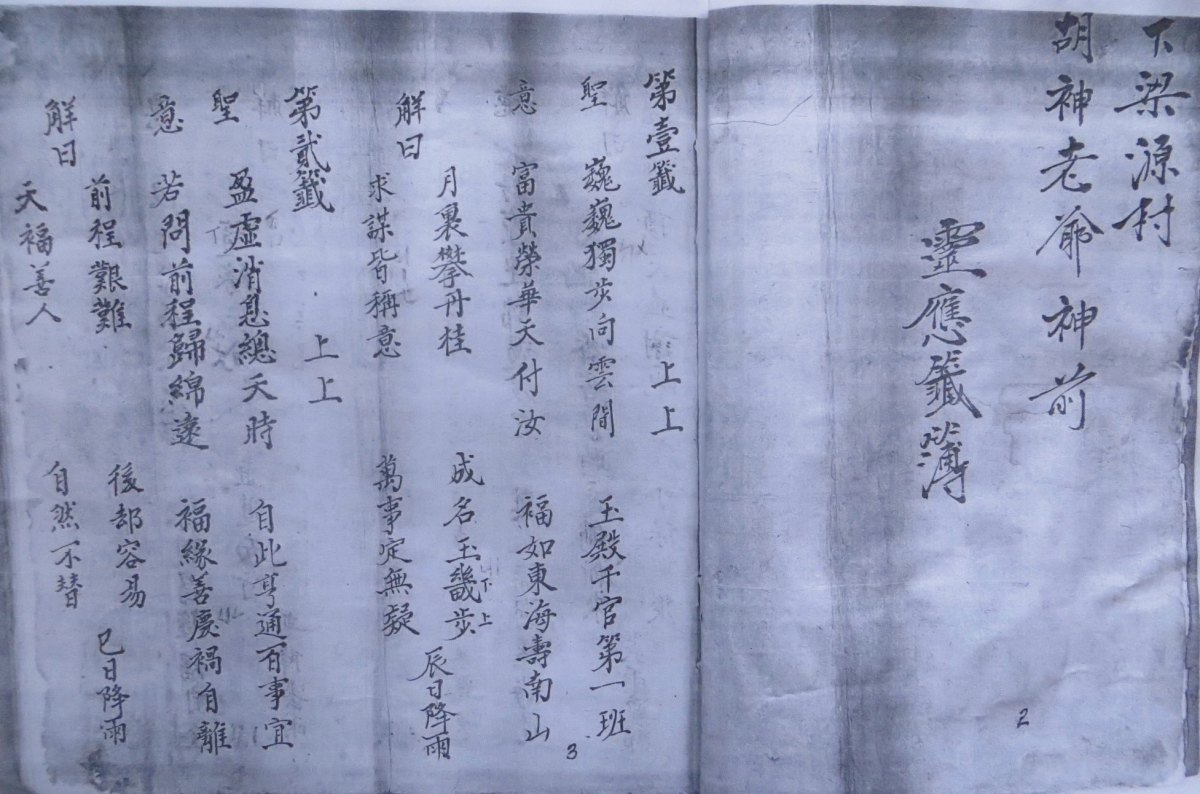 下梁源村
胡神老爺神前
靈應籤簿
2
第壹籤 上上
聖 巍巍獨步向雲間 玉殿千官第一班
意 富貴榮華天付汝 福如東海壽南山
解曰 月裏攀丹桂 成名玉畿步 下上 辰日降雨
求謀皆稱意 萬事定無疑
第貳籤 上上
聖 盈虛消息總天時 自此亨通百事宜
意 若問前程歸綿遠 福緣善慶禍自離
解曰 前程艱難 後却容易 巳日降雨
天福善人 自然不替
3